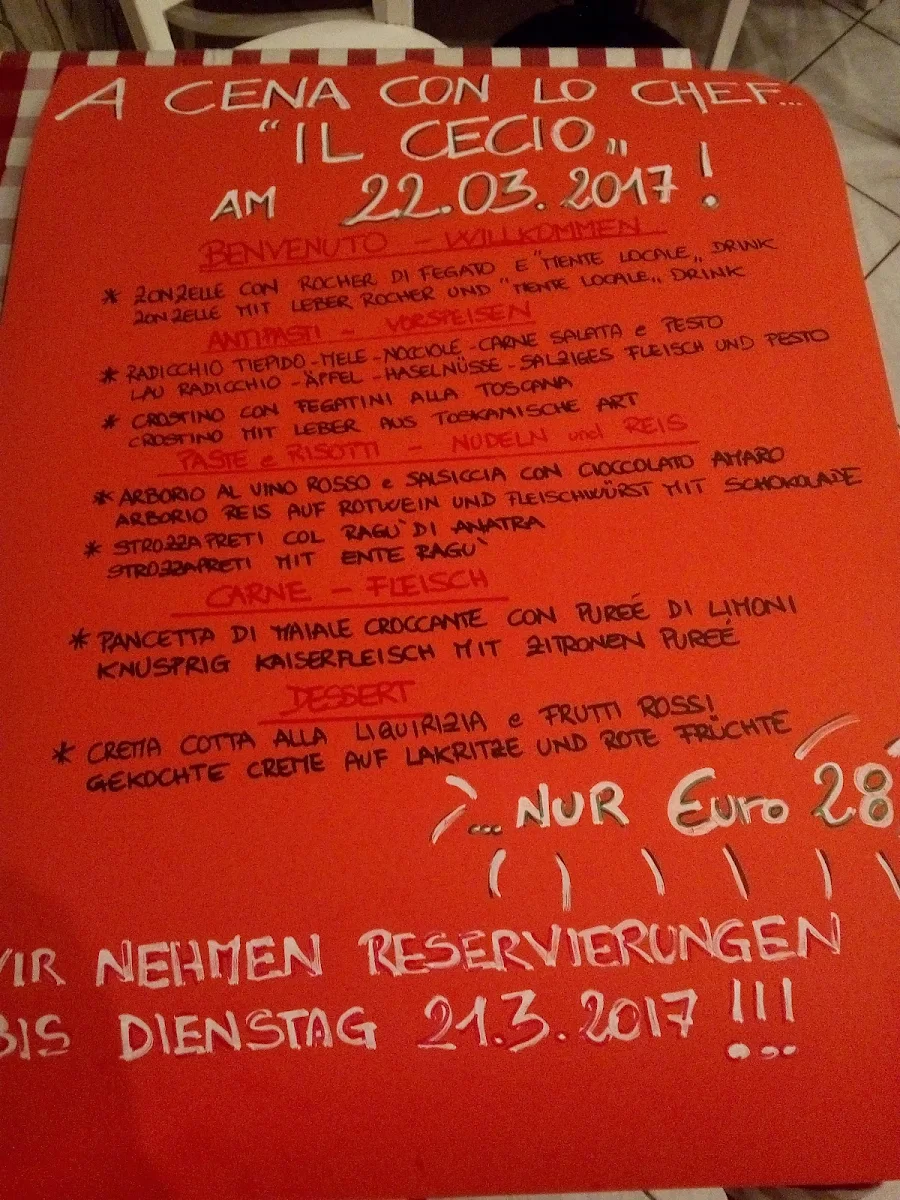 A CENA CON LO CHEF...
"IL CECIO„
AM 22.03.2017!
BENVENUTO - WILLKOMMEN
* ZONZELLE CON ROCHER DI FEGATO E "MENTE LOCALE„ DRINK
ZONZELLE MIT LEBER ROCHER UND "MENTE LOCALE„ DRINK
ANTIPASTI - VORSPEISEN
* RADICCHIO TIEPIDO - MELE - NOCCIOLE - CARNE SALATA e PESTO
LAU RADICCHIO - ÄPFEL - HASELNÜSSE - SALZIGES FLEISCH UND PESTO
* CROSTINO CON FEGATINI ALLA TOSCANA
CROSTINO MIT LEBER AUS TOSKAMISCHE ART
PASTE e RISOTTI - NUDELN und REIS
* ARBORIO AL VINO ROSSO e SALSICCIA CON CIOCCOLATO AMARO
ARBORIO REIS AUF ROTWEIN UND FLEISCHWÜRST MIT SCHOKOLADE
* STROZZAPRETI COL RAGU` DI ANATRA
STROZZAPRETI MIT ENTE RAGU`
CARNE - FLEISCH
* PANCETTA DI MAIALE CROCCANTE CON PUREÉ DI LIMONI
KNUSPRIG KAISERFLEISCH MIT ZITRONEN PUREÉ
DESSERT
* CREMA COTTA ALLA LIQUIRIZIA e FRUTTI ROSSI
GEKOCHTE CREME AUF LAKRITZE UND ROTE FRÜCHTE
...NUR Euro 28
WIR NEHMEN RESERVIERUNGEN
BIS DIENSTAG 21.3.2017 !!!